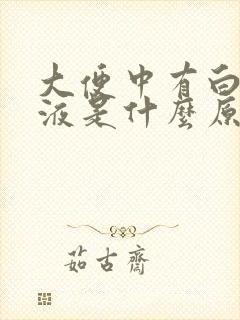 大便中有白
液是什麼原
茹古齋